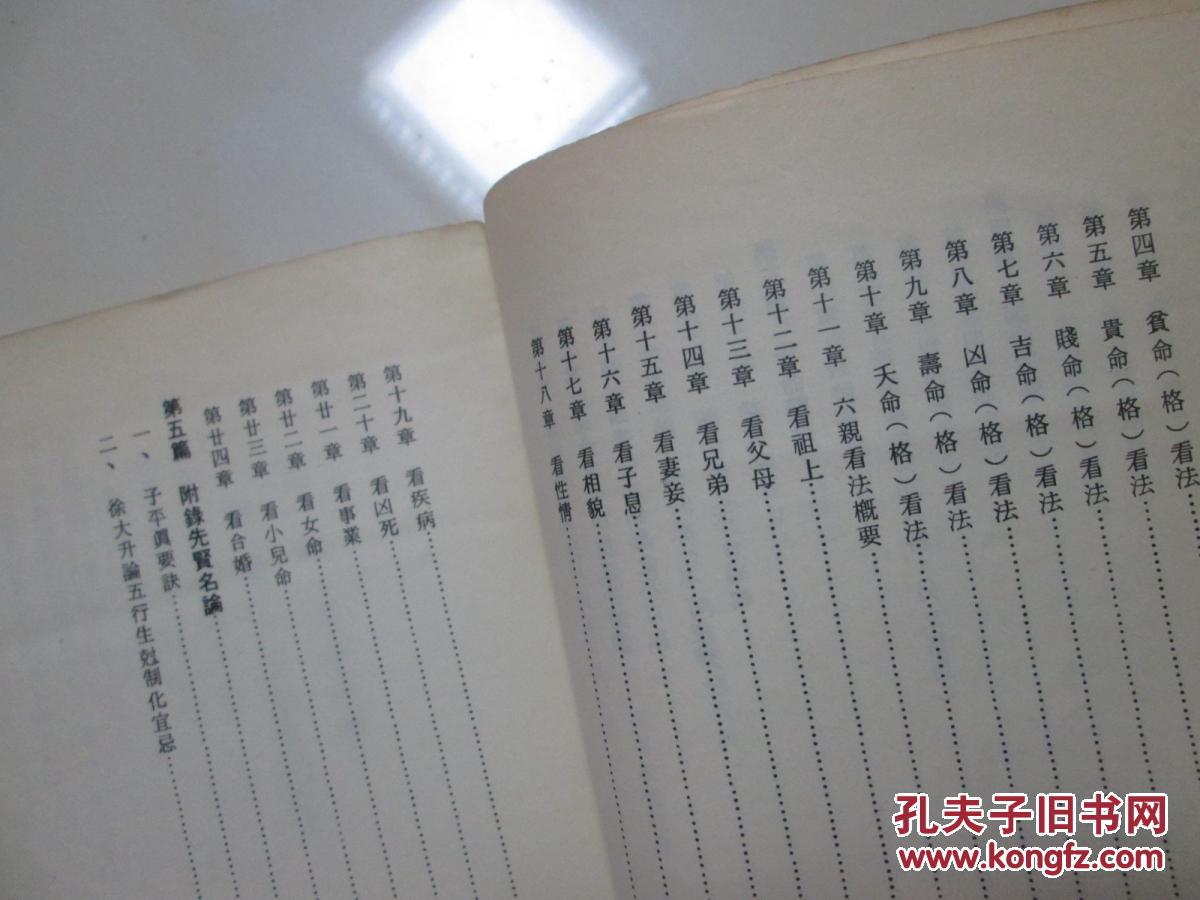 第四章 貧命(格)看法
第五章 貴命(格)看法
第六章 賤命(格)看法
第七章 吉命(格)看法
第八章 凶命(格)看法
第九章 壽命(格)看法
第十章 夭命(格)看法
第十一章 六親看法概要
第十二章 看祖上
第十三章 看父母
第十四章 看兄弟
第十五章 看妻妾
第十六章 看子息
第十七章 看相貌
第十八章 看性情
第十九章 看疾病
第二十章 看凶死
第廿一章 看事業
第廿二章 看女命
第廿三章 看小兒命
第廿四章 看合婚
第五篇 附錄先賢名論
一、子平眞要訣
二、徐大升論五行生尅制化宜忌
孔夫子旧书网
www.kongfz.com